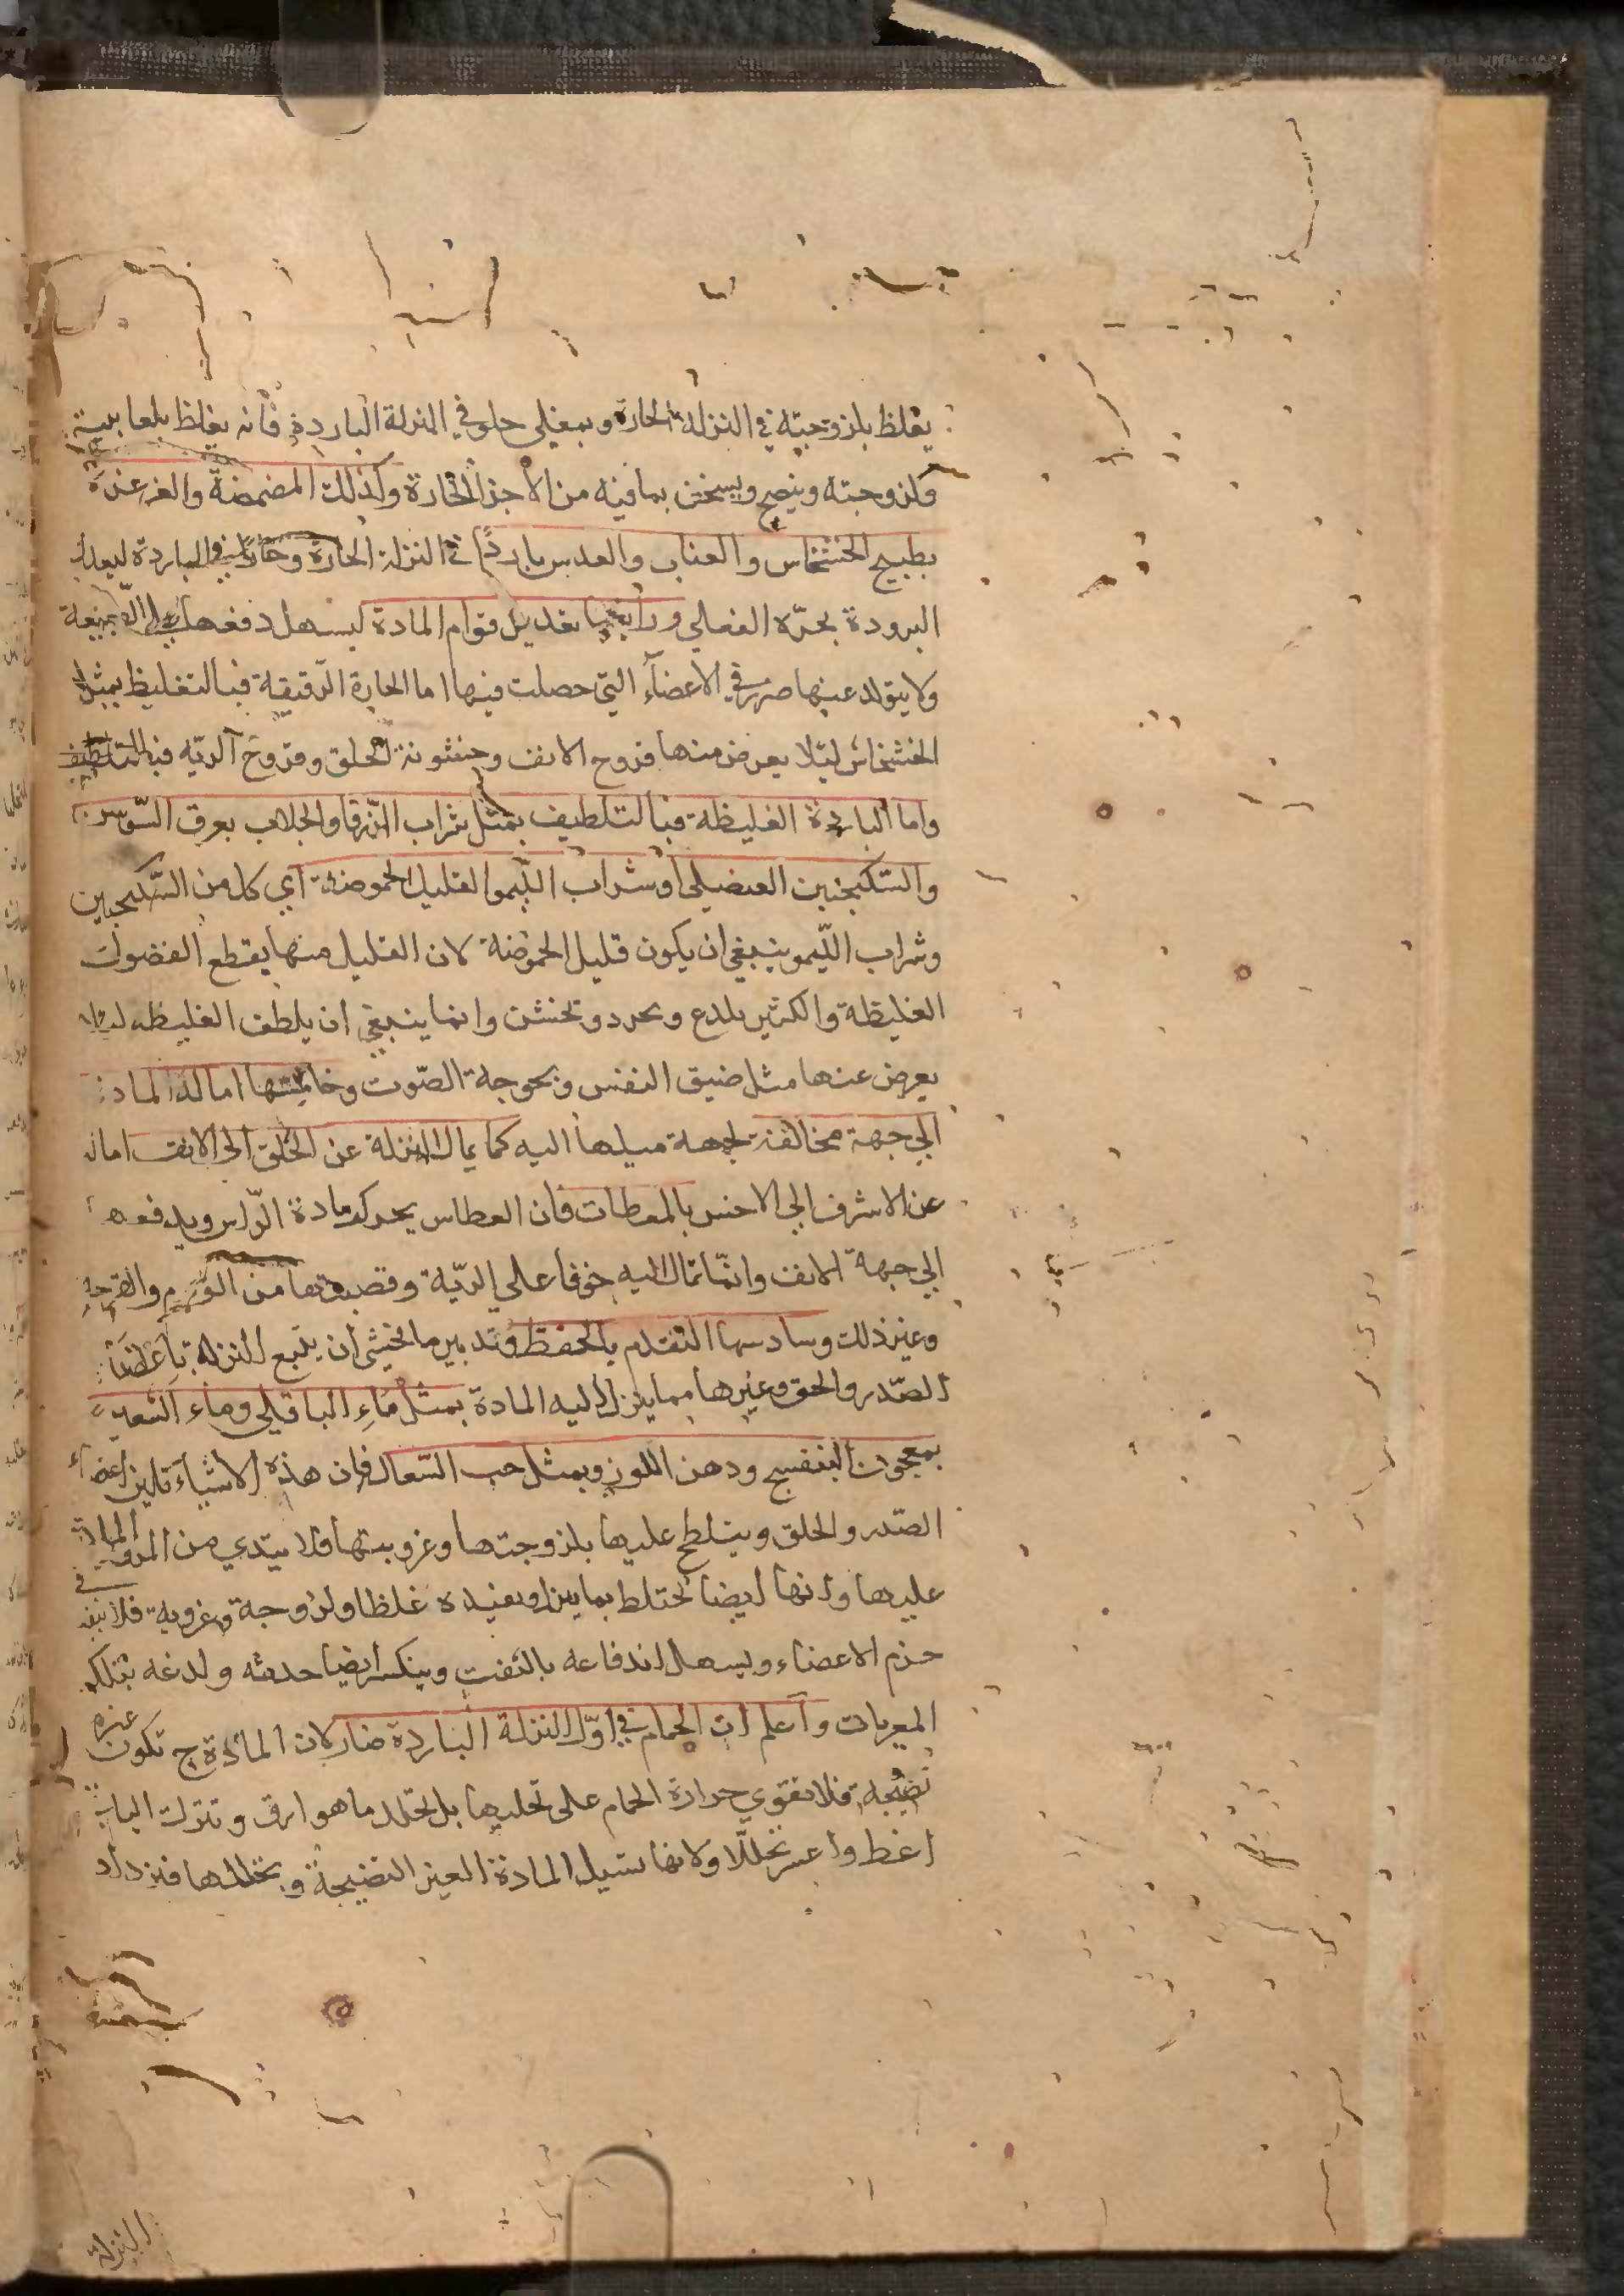 يغلظ بلزوجته في النزلة الحارة وبمغلي حلو في النزلة الباردة فانه يغلظ بلعابيته
ولزوجته وينضج ويسخن بما فيه من الأجزا الحارة وكذلك المضمضة والغرغرة
بطبيخ الخشخاس والعناب والعدس باردًا في النزلة الحارة وحارا في الباردة ليعدل
البرودة بحرّه الفعلي ورابعها تعديل قوام المادة ليسهل دفعها على الطبيعة
ولا يتولد عنها ضرر في الاعضآء التي حصلت فيها اما الحارة الرقيقة فبالتغليظ بمثل
الخشخاش لئلا يعرض منها قروح الانف وخشونة الحلق وقروح الريّه
واما الباردة الغليظة فبالتلطيف بمثل شراب الزوفا والجلاب بعرق السّوس
والسّكنجبين العنصلي او شراب اللّيمو القليل الحموضة اي كل من السّكنجبين
وشراب اللّيمو ينبغي ان يكون قليل الحموضة لان القليل منها يقطع الفضول
الغليظة والكثير يلدع ويجرد ويخشن وانما ينبغي ان يلطف الغليظه ليلا
يعرض عنها مثل ضيق النفس وبحوحة الصّوت وخامسها امالة المادة
الي جهة مخالفة لجهة ميلها اليه كما يمال النزلة عن الحلق الى الانف اماله
عن الاشرف الي الاخس بالمعطسات فان العطاس يحرك مادة الرّاس ويدفعها
الي جهة الانف وانمّا تمال اليه خوفا على الريّة وقصبتها من الورم والقرحة
وغير ذلك وسادسها التقدم بالحفظ وتدبير ما يخشى ان يتبع النزلة باعضآ
الصّدر والحلق وغيرها مما ينزل اليه المادة بمثل مآءِ الباقلي ومآء الشعير
بمعجون البنفسج ودهن اللوز وبمثل حب السّعال فان هذه الاشيآء تلين اعضاء
الصّدر والحلق ويتلطخ عليها بلزوجتها وغرويتها فلا يتدي من المادة
عليها وانها ايضا تختلط بما ينزل ويفيده غلظا ولزوجة وغروية فلا ينفذ في
جرم الاعضاء ويسهل اندفاعه بالنفث وينكسر ايضا حدته ولدغه بتلك
المغريات وآعلم ان الحمام في اوّل النزلة الباردة ضار لان المادة ح تكون غير
نضيجة فلا تقوي حرارة الحمام على تحليلها بل تحلل ما هو ارق وتترك الباقي
اغلظ واعسر تحلّلا ولانها تسيل المادة الغير النضيجة ويخللها فيزداد
النزلة